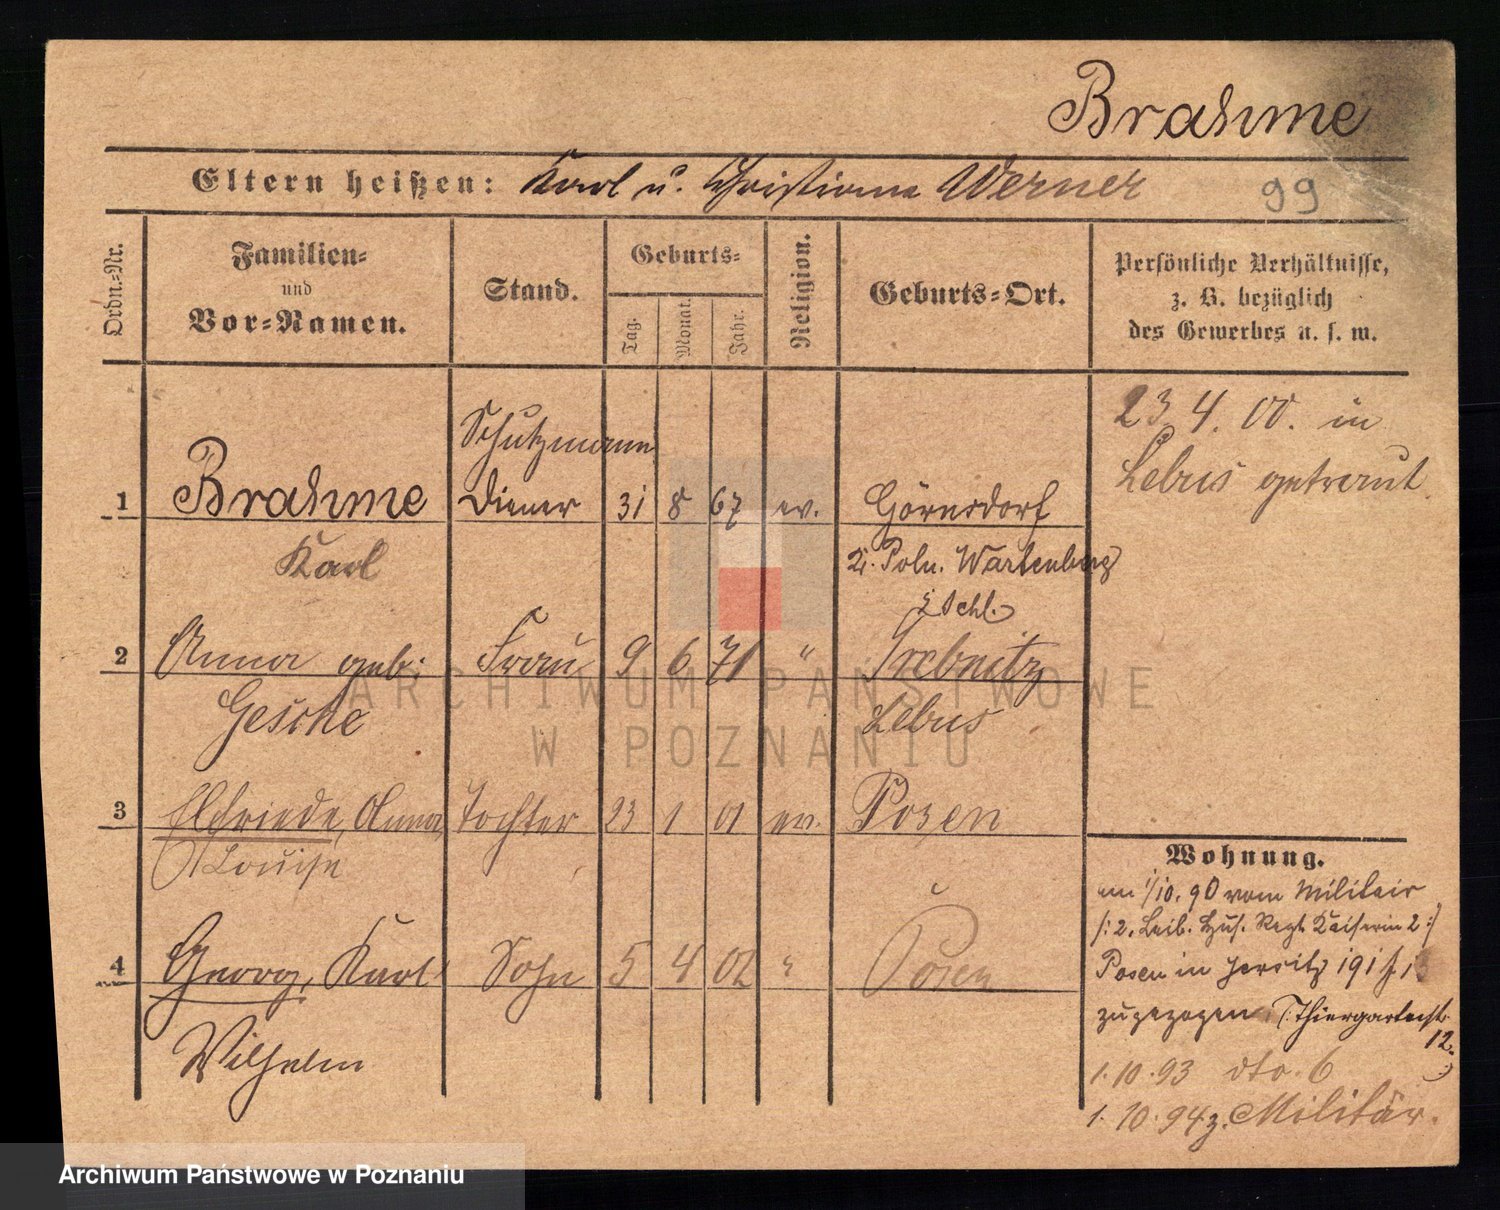 Brahme
Eltern heißen: Karl u. Christiane Werner
99
Ordn.-Nr.
Familien-
und
Vor-Namen.
Stand.
Geburts-
Tag.
Monat.
Jahr.
Religion.
Geburts-Ort.
Persönliche Verhältnisse,
z. B. bezüglich
des Gewerbes u. s. w.
Schutzmann
1 Brahme Diener 31 8 67 ev. Görnsdorf
Karl
Kr. Poln. Wartenberg
i Schl.
23 4. 00. in
Lebus getraut
2 Anna geb: Frau 9 6 71 " Trebnitz
Geschke Lebus
3 Elfriede, Anna Tochter 23 1 01 ev. Posen
Louise
4 Georg, Karl Sohn 5 4 02 " Posen
Wilhelm
Wohnung.
am 1/10. 90 vom Militair
/: 2. Leib. Hus. Regt. Kaiserin 2 :/
Posen in Jersitz 191
zugezogen Thiergartenst.
12.
1. 10. 93 dto. 6
1. 10. 94 z. Militär.
ARCHIWUM PAŃSTWOWE
W POZNANIU
Archiwum Państwowe w Poznaniu